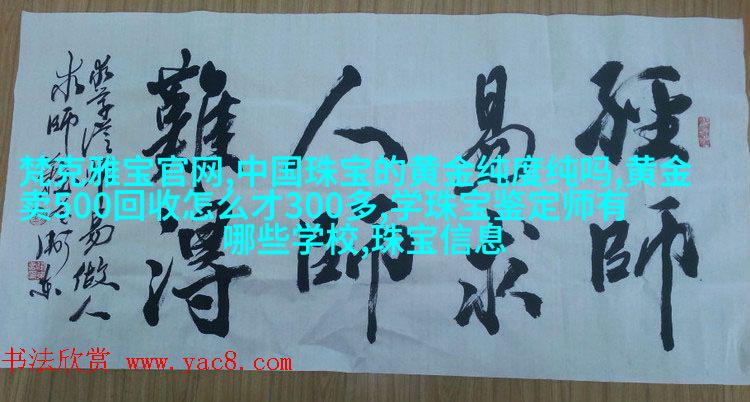 經師
易求
人師
難得
易做人
求師難
梵克雅宝官网,中国珠宝的黄金纯度纯吗,黄金
卖500回收怎么才300多,学珠宝鉴定师有
哪些学校,珠宝信息
书法欣赏 www.yac8.com